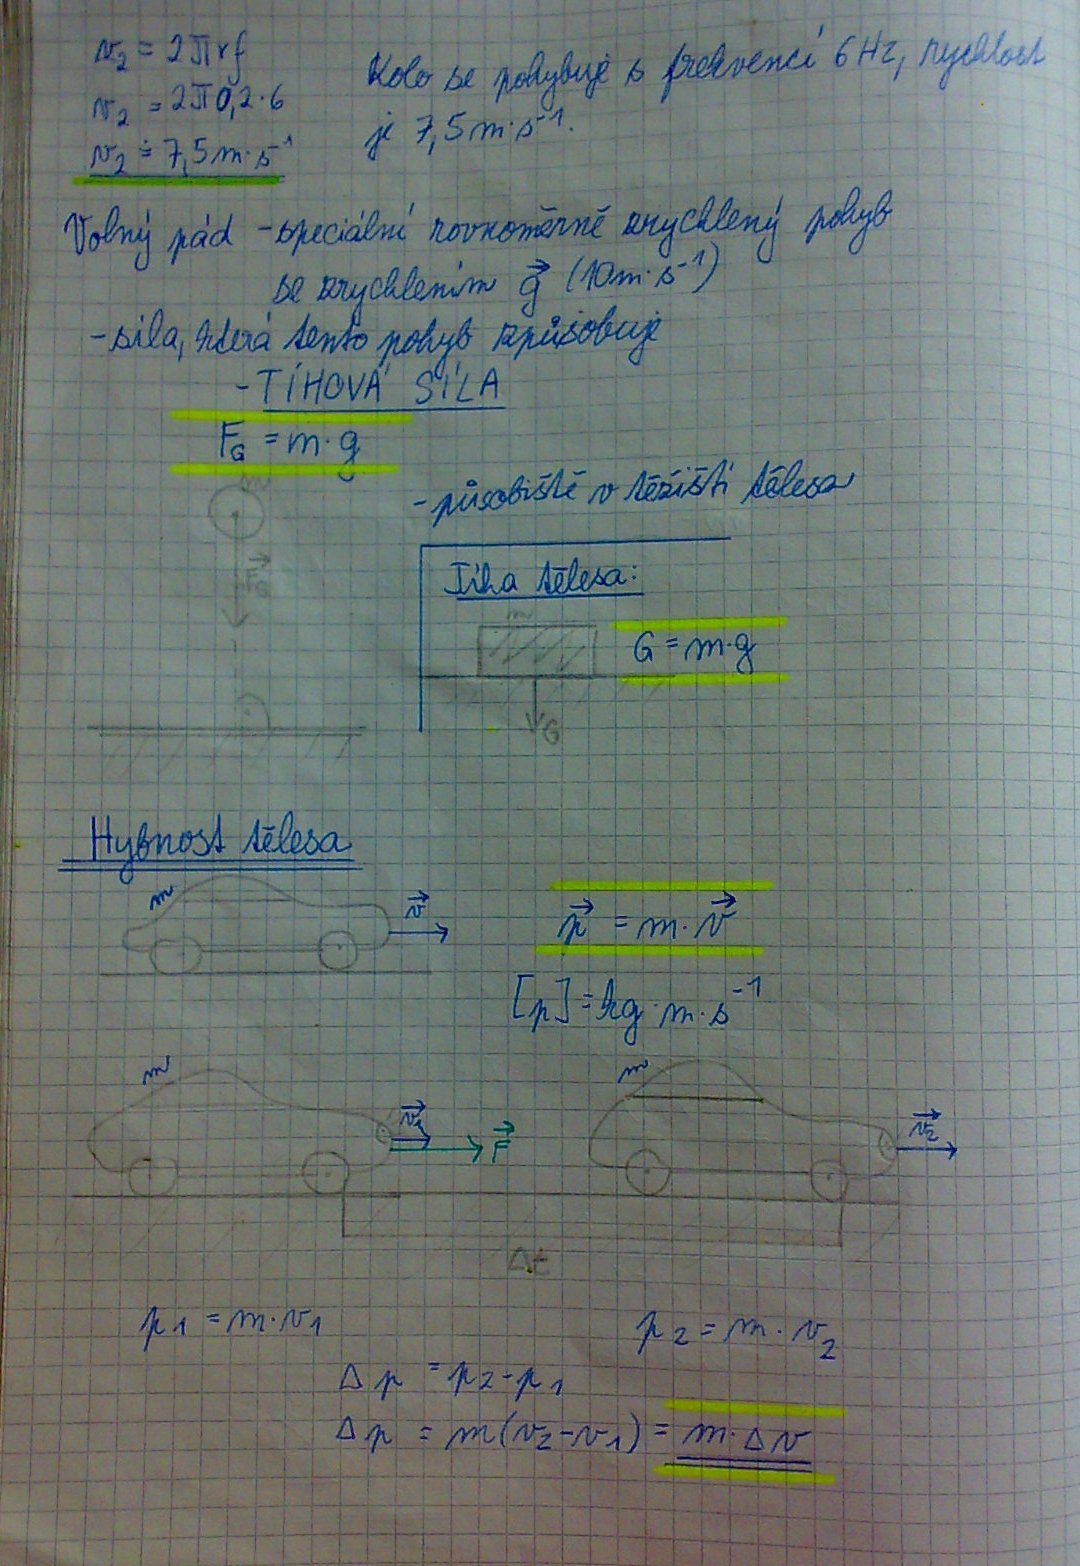 v₂ = 2πrf
Kolo se pohybuje s frekvencí 6 Hz, rychlost
v₂ = 2π0,2·6
je 7,5 m·s⁻¹.
v₂ ≐ 7,5 m·s⁻¹
Volný pád - speciální rovnoměrně zrychlený pohyb
se zrychlením g⃗ (10 m·s⁻¹)
- síla, která tento pohyb způsobuje
- TÍHOVÁ SÍLA
F_G = m·g
m
- působiště v těžišti tělesa
F⃗_G
Tíha tělesa:
m
G = m·g
G
Hybnost tělesa
m
v⃗
p⃗ = m·v⃗
[p] = kg·m·s⁻¹
m
m
v⃗₁
F⃗
v⃗₂
Δt
p₁ = m·v₁
p₂ = m·v₂
Δp = p₂-p₁
Δp = m(v₂-v₁) = m·Δv